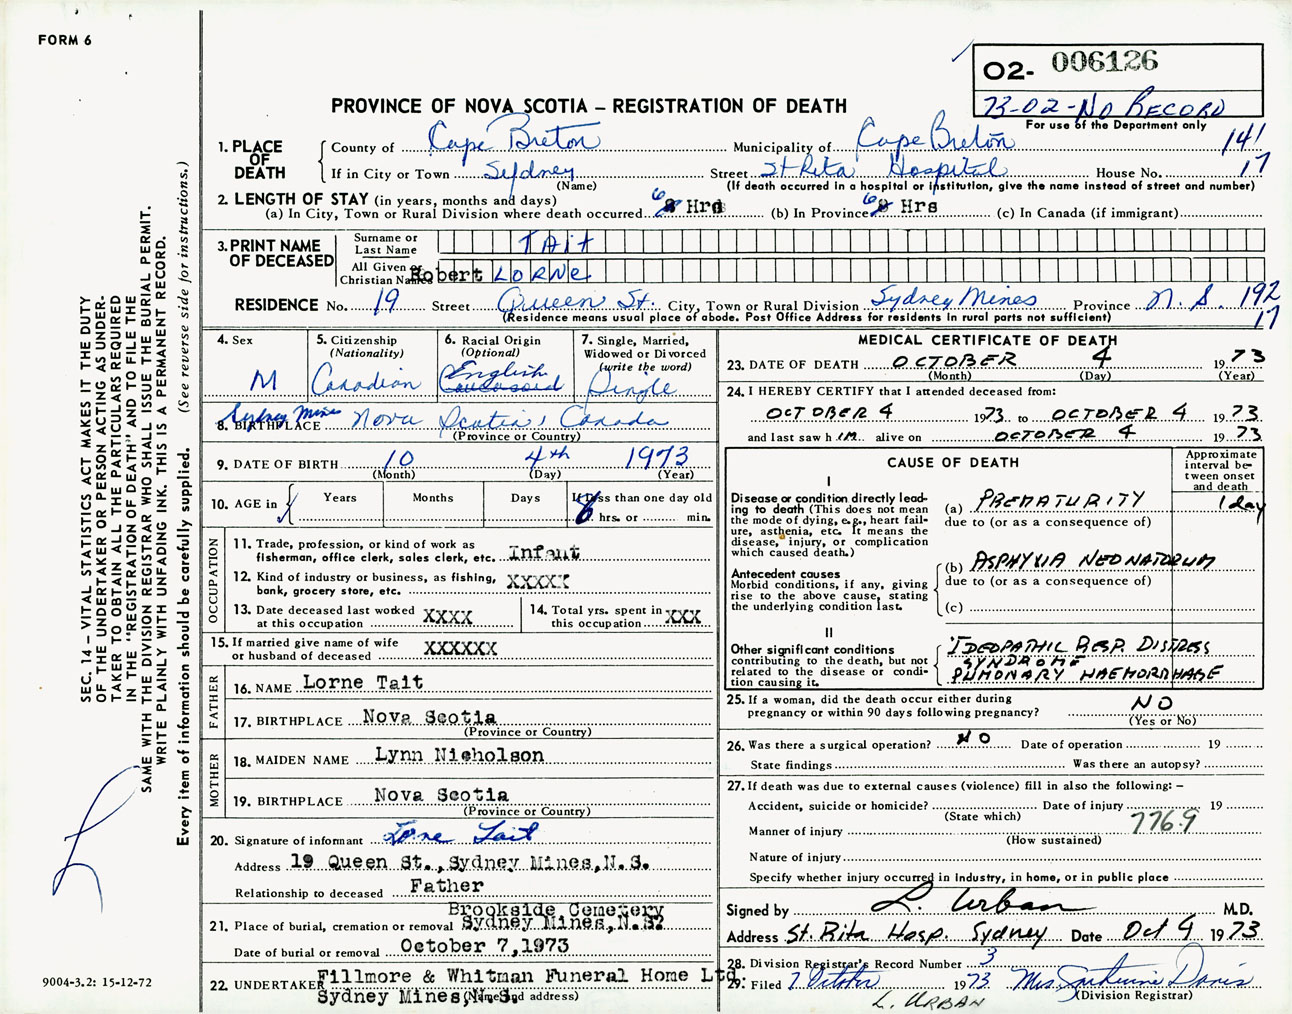 FORM 6
O2- 006126
73-02-No RECORD
For use of the Department only
PROVINCE OF NOVA SCOTIA – REGISTRATION OF DEATH
1. PLACE OF DEATH
County of Cape Breton Municipality of Cape Breton 141
If in City or Town Sydney Street St Rita Hospital House No. 17
(Name) (If death occurred in a hospital or institution, give the name instead of street and number)
2. LENGTH OF STAY (in years, months and days)
(a) In City, Town or Rural Division where death occurred 6 Hrs (b) In Province 6 Hrs (c) In Canada (if immigrant)
3. PRINT NAME OF DECEASED
Surname or Last Name TAit
All Given or Christian Names Robert LORNe
RESIDENCE No. 19 Street Queen St. City, Town or Rural Division Sydney Mines Province N. S. 192
17
(Residence means usual place of abode. Post Office Address for residents in rural parts not sufficient)
4. Sex
M
5. Citizenship
(Nationality)
Canadian
6. Racial Origin
(Optional)
English
7. Single, Married,
Widowed or Divorced
(write the word)
Single
8. BIRTHPLACE Sydney Mines Nova Scotia, Canada
(Province or Country)
9. DATE OF BIRTH 10 4th 1973
(Month) (Day) (Year)
10. AGE in Years Months Days If less than one day old
6 hrs. or min.
OCCUPATION
11. Trade, profession, or kind of work as
fisherman, office clerk, sales clerk, etc. Infant
12. Kind of industry or business, as fishing,
bank, grocery store, etc. XXXXX
13. Date deceased last worked
at this occupation XXXX
14. Total yrs. spent in
this occupation XXX
15. If married give name of wife
or husband of deceased XXXXXX
FATHER
16. NAME Lorne Tait
17. BIRTHPLACE Nova Scotia
(Province or Country)
MOTHER
18. MAIDEN NAME Lynn Nicholson
19. BIRTHPLACE Nova Scotia
(Province or Country)
20. Signature of informant Lorne Tait
Address 19 Queen St., Sydney Mines, N.S.
Relationship to deceased Father
Brookside Cemetery
21. Place of burial, cremation or removal Sydney Mines, N.S.
Date of burial or removal October 7, 1973
22. UNDERTAKER Fillmore & Whitman Funeral Home Ltd.
Sydney Mines, N.S.
(Name and address)
MEDICAL CERTIFICATE OF DEATH
23. DATE OF DEATH OCTOBER 4 1973
(Month) (Day) (Year)
24. I HEREBY CERTIFY that I attended deceased from:
OCTOBER 4 1973. to OCTOBER 4 1973
and last saw h IM alive on OCTOBER 4 1973
CAUSE OF DEATH
Approximate interval between onset and death
I
Disease or condition directly leading to death (This does not mean the mode of dying, e.g., heart failure, asthenia, etc. It means the disease, injury, or complication which caused death.)
(a) PREMATURITY 1 day
due to (or as a consequence of)
Antecedent causes
Morbid conditions, if any, giving rise to the above cause, stating the underlying condition last.
(b) ASPHYXIA NEONATORUM
due to (or as a consequence of)
(c)
II
Other significant conditions
contributing to the death, but not related to the disease or condition causing it.
IDEOPATHIC RESP. DISTRESS
SYNDROME
PULMONARY HAEMORRHAGE
25. If a woman, did the death occur either during
pregnancy or within 90 days following pregnancy? NO
(Yes or No)
26. Was there a surgical operation? NO Date of operation 19
State findings Was there an autopsy?
27. If death was due to external causes (violence) fill in also the following: –
Accident, suicide or homicide? Date of injury 19
(State which)
776.9
Manner of injury
(How sustained)
Nature of injury
Specify whether injury occurred in industry, in home, or in public place
Signed by L. Urban M.D.
Address St. Rita Hosp. Sydney Date Oct 4 1973
28. Division Registrar's Record Number 3
29. Filed 7 October 1973 Mrs. Davis
(Division Registrar)
L. URBAN
SEC. 14 – VITAL STATISTICS ACT MAKES IT THE DUTY
OF THE UNDERTAKER OR PERSON ACTING AS UNDER-
TAKER TO OBTAIN ALL THE PARTICULARS REQUIRED
IN THE "REGISTRATION OF DEATH" AND TO FILE THE
SAME WITH THE DIVISION REGISTRAR WHO SHALL ISSUE THE BURIAL PERMIT.
WRITE PLAINLY WITH UNFADING INK. THIS IS A PERMANENT RECORD.
Every item of information should be carefully supplied. (See reverse side for instructions.)
9004-3.2: 15-12-72